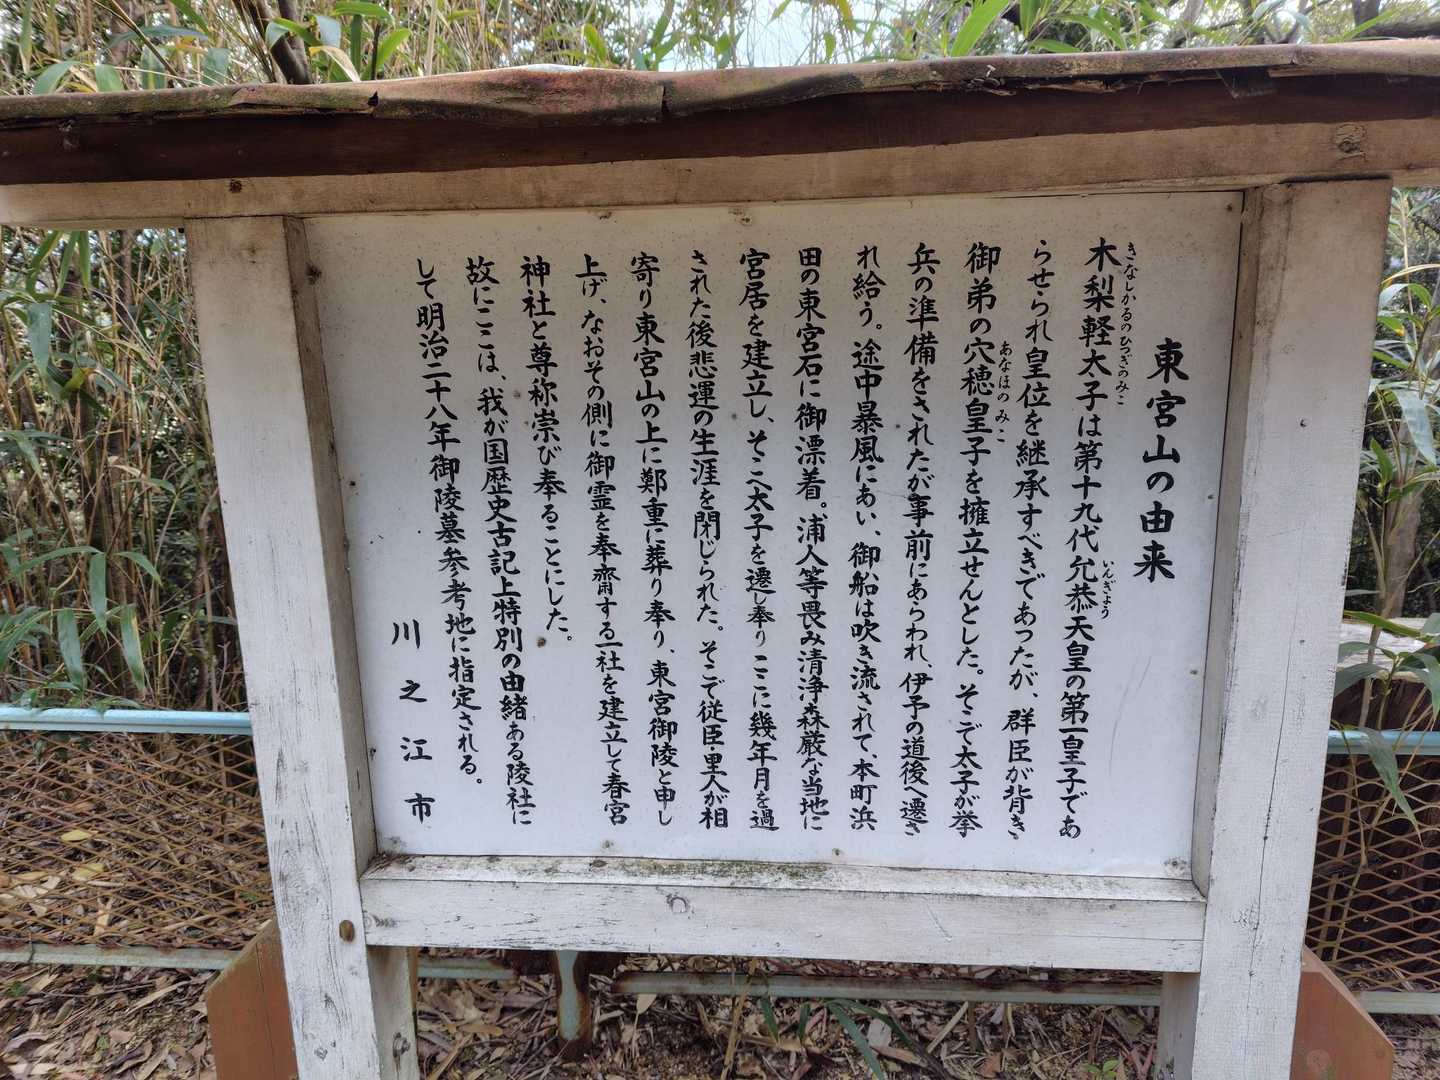 東宮山の由来
木梨軽太子は第十九代允恭天皇の第一皇子であ
きなしかるのひつぎのみこ
いんぎょう
らせられ皇位を継承すべきであったが、群臣が背き
御弟の穴穂皇子を擁立せんとした。そこで太子が挙
あなほのみこ
兵の準備をされたが事前にあらわれ、伊予の道後へ遷さ
れ給う。途中暴風にあい、御船は吹き流されて、本町浜
田の東宮石に御漂着。浦人等畏み清浄森厳な当地に
宮居を建立し、そこへ太子を遷し奉りここに幾年月を過
された後悲運の生涯を閉じられた。そこで従臣・里人が相
寄り東宮山の上に鄭重に葬り奉り、東宮御陵と申し
上げ、なおその側に御霊を奉齋する一社を建立して春宮
神社と尊称崇び奉ることにした。
故にここは、我が国歴史古記上特別の由緒ある陵社に
して明治二十八年御陵墓参考地に指定される。
川之江市